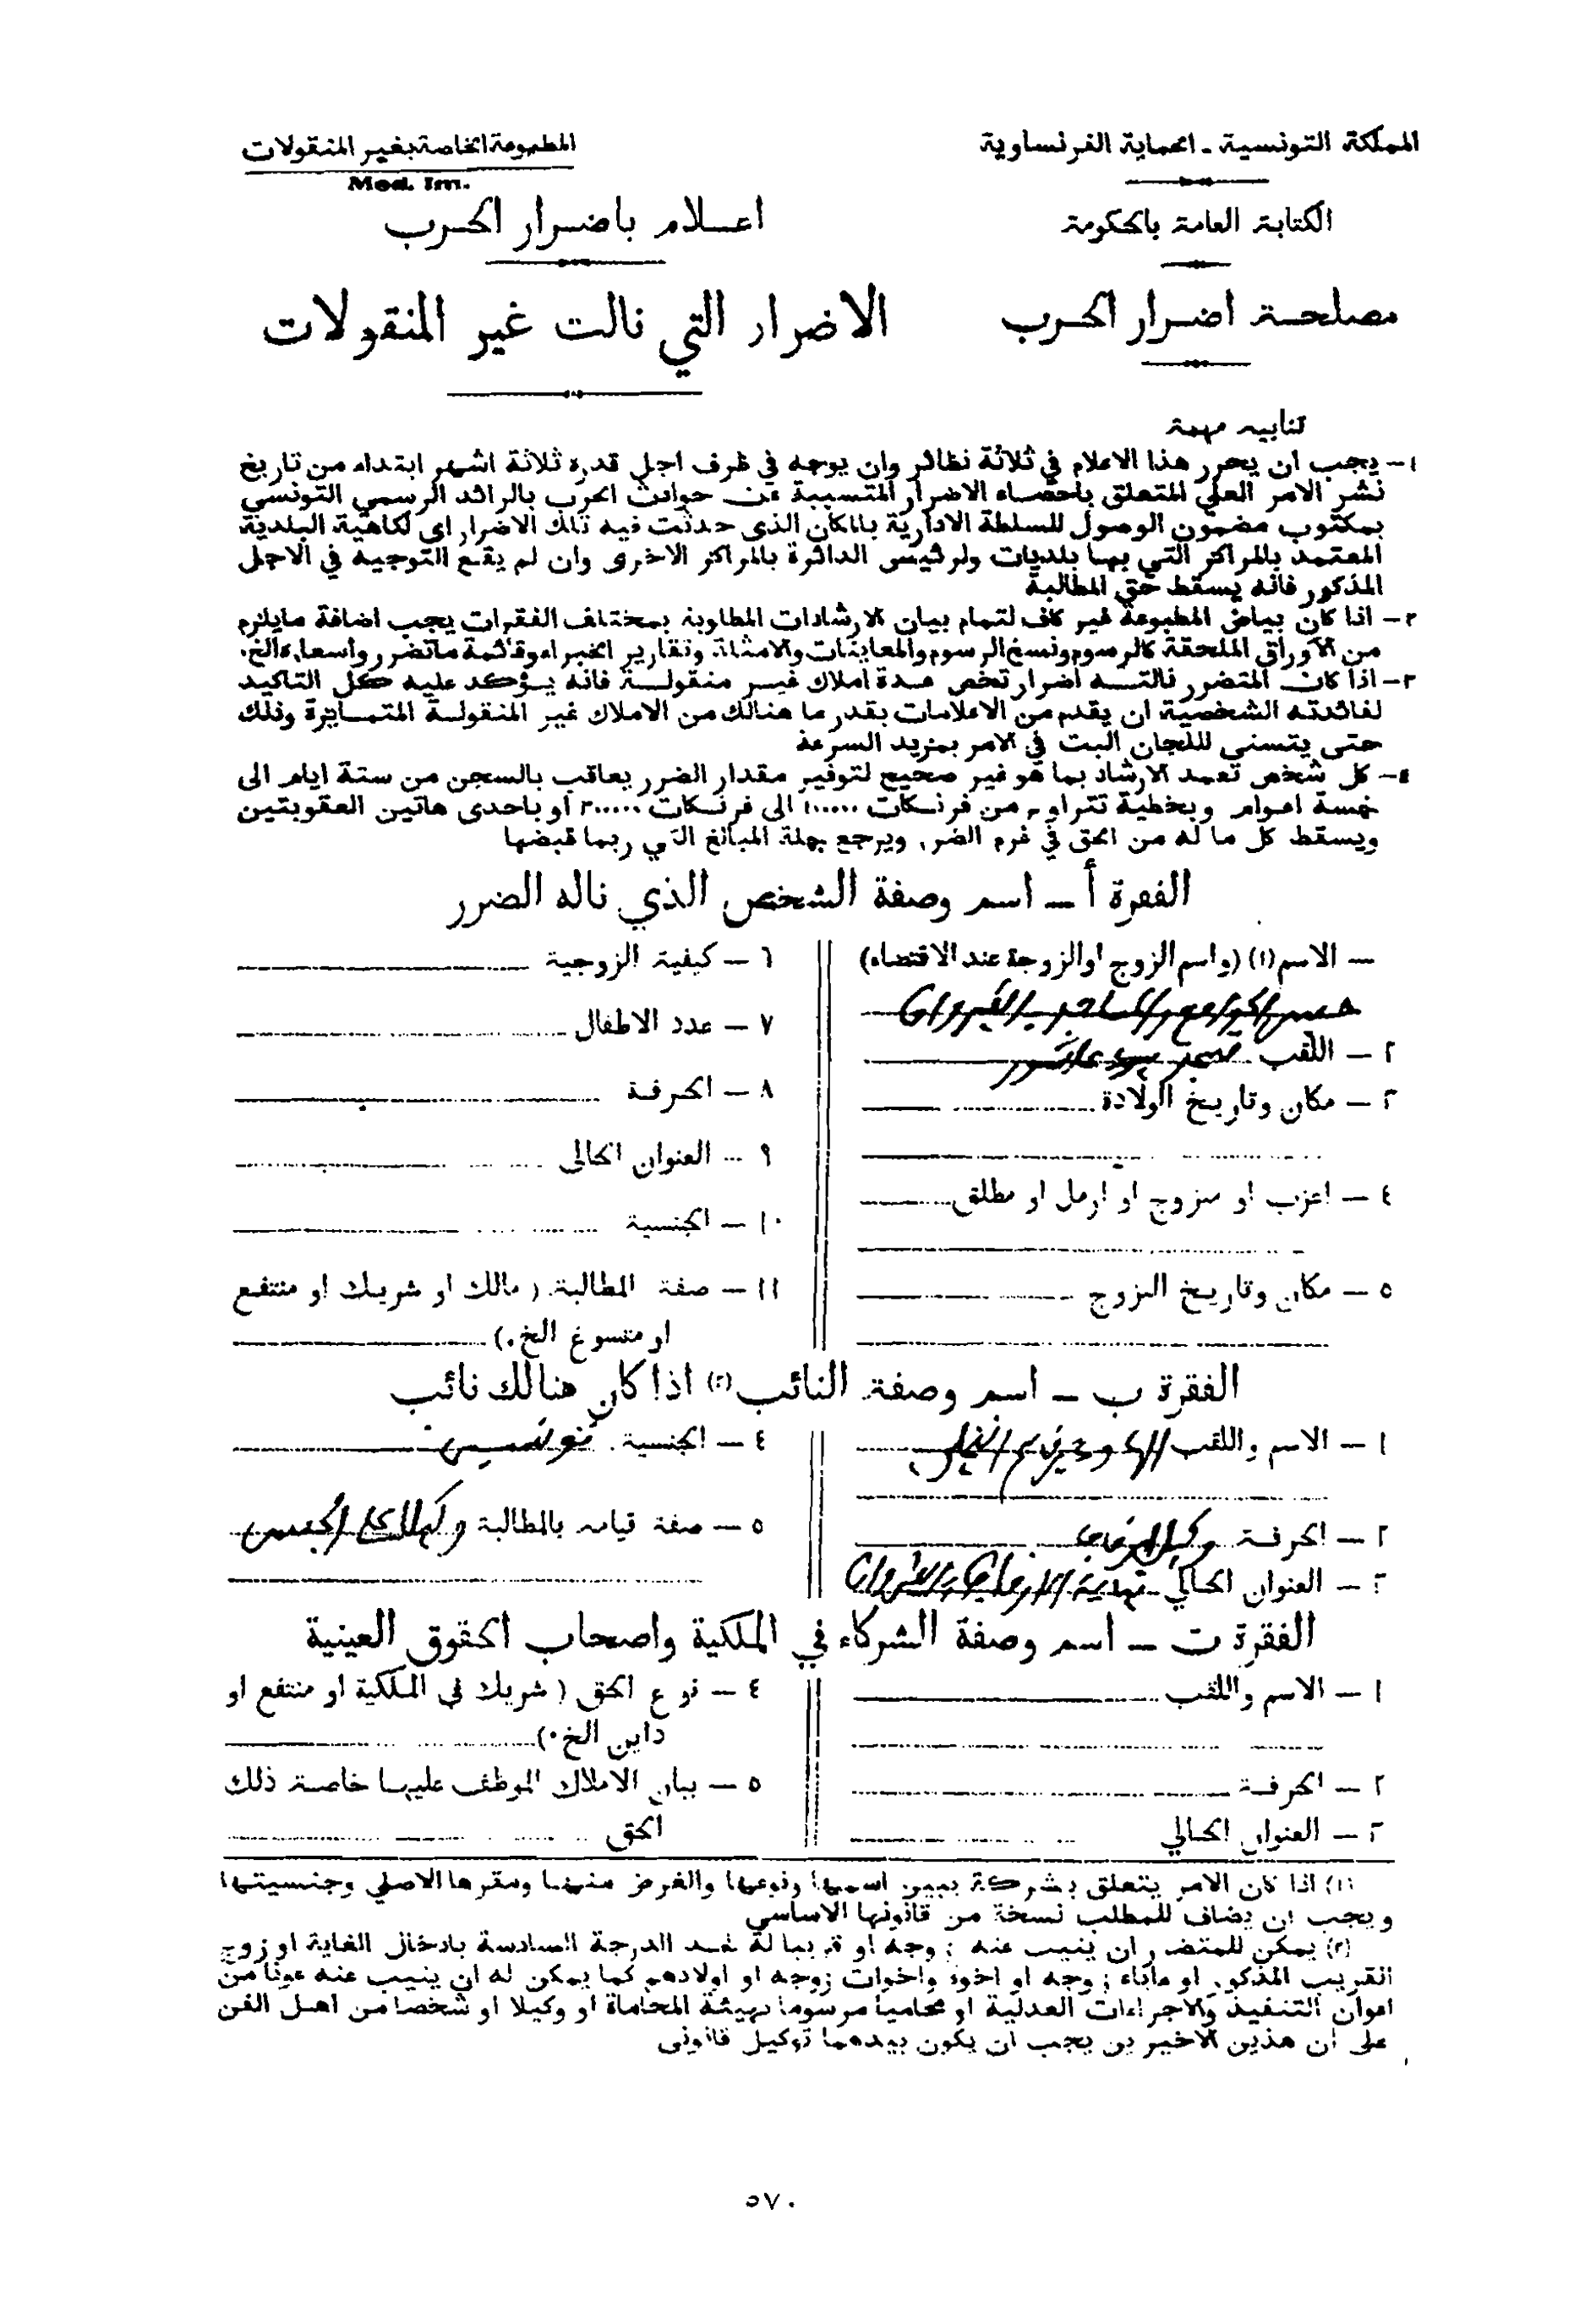 المملكة التونسية - الحماية الفرنساوية
الكتابة العامة بالحكومة
مصلحة اضرار الحرب
المطبوعة الخاصة بغير المنقولات
Mod. Im.
اعلام باضرار الحرب
الاضرار التي نالت غير المنقولات
تنابيه مهمة
١ - يجب ان يحرر هذا الاعلام في ثلاثة نظائر وان يوجه في ظرف اجل قدره ثلاثة اشهر ابتداء من تاريخ
نشر الامر العلي المتعلق باحصاء الاضرار المتسببة عن حوادث الحرب بالرائد الرسمي التونسي
بمكتوب مضمون الوصول للسلطة الادارية بالمكان الذى حدثت فيه تلك الاضرار اى لكاهية البلدية
المعتمد بالمراكز التي بها بلديات ولرئيس الدائرة بالمراكز الاخرى وان لم يقع التوجيه في الاجل
المذكور فانه يسقط حق المطالبة
٢ - اذا كان بياض المطبوعة غير كاف لتمام بيان الارشادات المطلوبة بمختلف الفقرات يجب اضافة ما يلزم
من الاوراق الملحقة كالرسوم ونسخ الرسوم والمعاينات والامثلة وتقارير الخبراء وقائمة ما تضرر واسعاره الخ.
٣ - اذا كان المتضرر نالته اضرار تخص عدة املاك غير منقولة فانه يؤكد عليه كل التاكيد
لفائدته الشخصية ان يقدم من الاعلامات بقدر ما هنالك من الاملاك غير المنقولة المتمايزة وذلك
حتى يتسنى للجان البت في الامر بمزيد السرعة
٤ - كل شخص تعمد الارشاد بما هو غير صحيح لتوفير مقدار الضرر يعاقب بالسجن من ستة ايام الى
خمسة اعوام وبخطية تتراوح من فرنكات الى فرنكات او باحدى هاتين العقوبتين
ويسقط كل ما له من الحق في غرم الضرر ويرجع جملة المبالغ التي ربما قبضها
الفقرة أ - اسم وصفة الشخص الذي ناله الضرر
— الاسم (١) (واسم الزوج او الزوجة عند الاقتضاء)
٢ - اللقب
٣ - مكان وتاريخ الولادة
٤ - اعزب او متزوج او ارمل او مطلق
٥ - مكان وتاريخ التزوج
٦ - كيفية الزوجية
٧ - عدد الاطفال
٨ - الحرفة
٩ - العنوان الحالى
١٠ - الجنسية
١١ - صفة المطالبة ( مالك او شريك او منتفع
او متسوغ الخ.)
الفقرة ب - اسم وصفة النائب (٢) اذا كان هنالك نائب
١ - الاسم واللقب
٢ - الحرفة
٣ - العنوان الحالي
٤ - الجنسية تونسي
٥ - صفة قيامه بالمطالبة
الفقرة ت - اسم وصفة الشركاء في الملكية واصحاب الحقوق العينية
١ - الاسم واللقب
٢ - الحرفة
٣ - العنوان الحالي
٤ - نوع الحق ( شريك في الملكية او منتفع او
داين الخ.)
٥ - بيان الاملاك الموظف عليها خاصة ذلك
الحق
(١) اذا كان الامر يتعلق بشركة يبين اسمها ونوعها والغرض منها ومقرها الاصلي وجنسيتها
ويجب ان يضاف للمطلب نسخة من قانونها الاساسي
(٢) يمكن للمتضرر ان ينيب عنه زوجه او قريبا له لغد الدرجة السادسة بادخال الغاية او زوج
القريب المذكور او ءاباء زوجه او اخوة واخوات زوجه او اولادهم كما يمكن له ان ينيب عنه عونا من
اعوان التنفيذ والاجراءات العدلية او محاميا مرسوما بهيئة المحاماة او وكيلا او شخصا من اهل الفن
على ان هذين الاخيرين يجب ان يكون بيدهما توكيل قانونى
٥٧٠